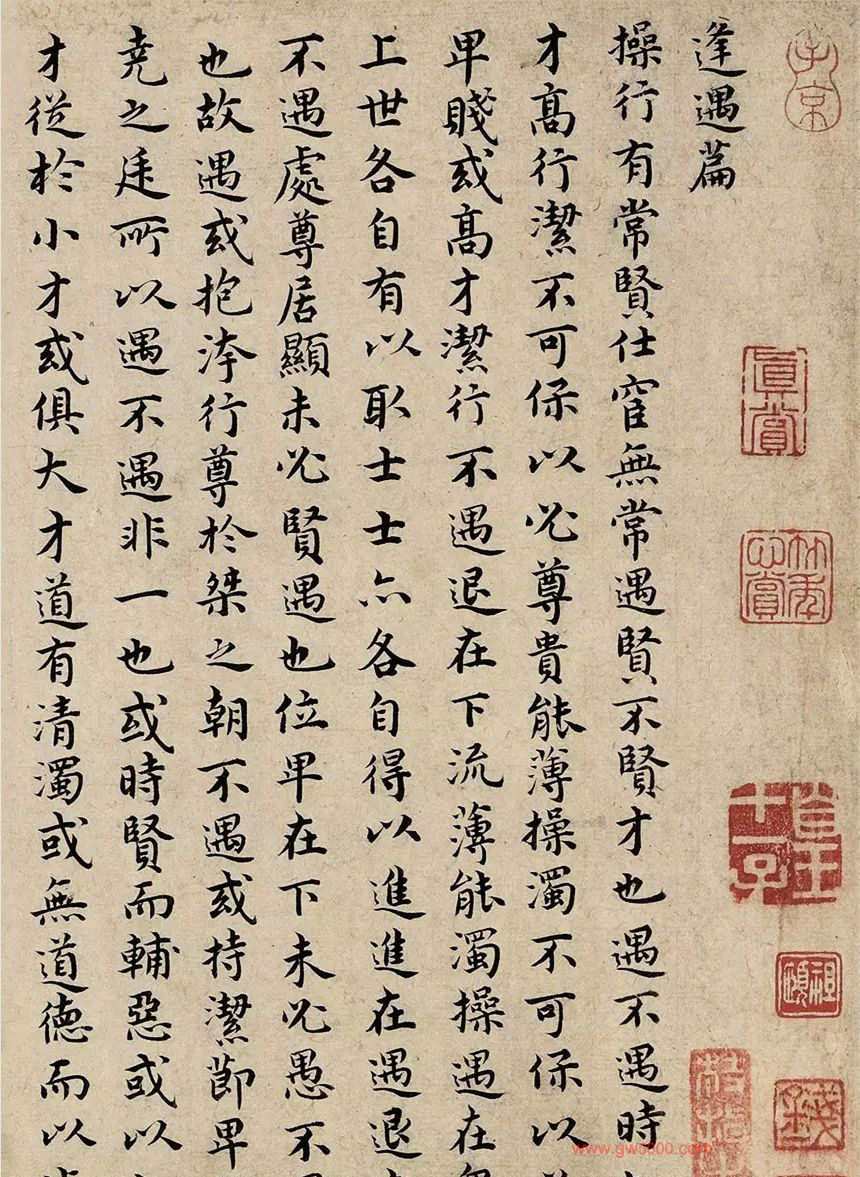 子京
真賞
逢遇篇
操行有常賢仕宦無常遇賢不賢才也遇不遇時
才髙行潔不可保以必尊貴能薄操濁不可保以
卑賤或髙才潔行不遇退在下流薄能濁操遇在
上世各自有以取士士亦各自得以進進在遇退
不遇處尊居顯未必賢遇也位卑在下未必愚不
也故遇或抱洿行尊於桀之朝不遇或持潔節卑
堯之廷所以遇不遇非一也或時賢而輔惡或以
才從於小才或俱大才道有清濁或無道德而以
www.gw5000.com